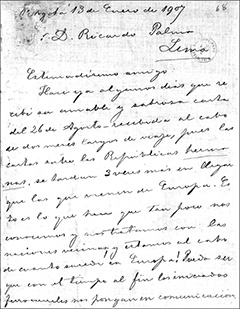 Bogotá 13 de Enero de 1907
68
S. D. Ricardo Palma
Lima
Estimadísimo amigo:
Hará ya algunos días que re-
cibí su amable y sabrosa carta
del 26 de Agosto - recibida al cabo
de dos meses largos de viaje, pues las
cartas entre las Repúblicas herma
nas, se tardan 3 veces más en llegar
que las que vienen de Europa. Es
to es lo que hace que tan poco nos
conozcamos y nos tratemos con las
naciones vecinas y estamos al cabo
de cuanto sucede en Europa! Puede ser
que con el tiempo al fin los iniciados
ferrocarriles nos pongan en comunicación